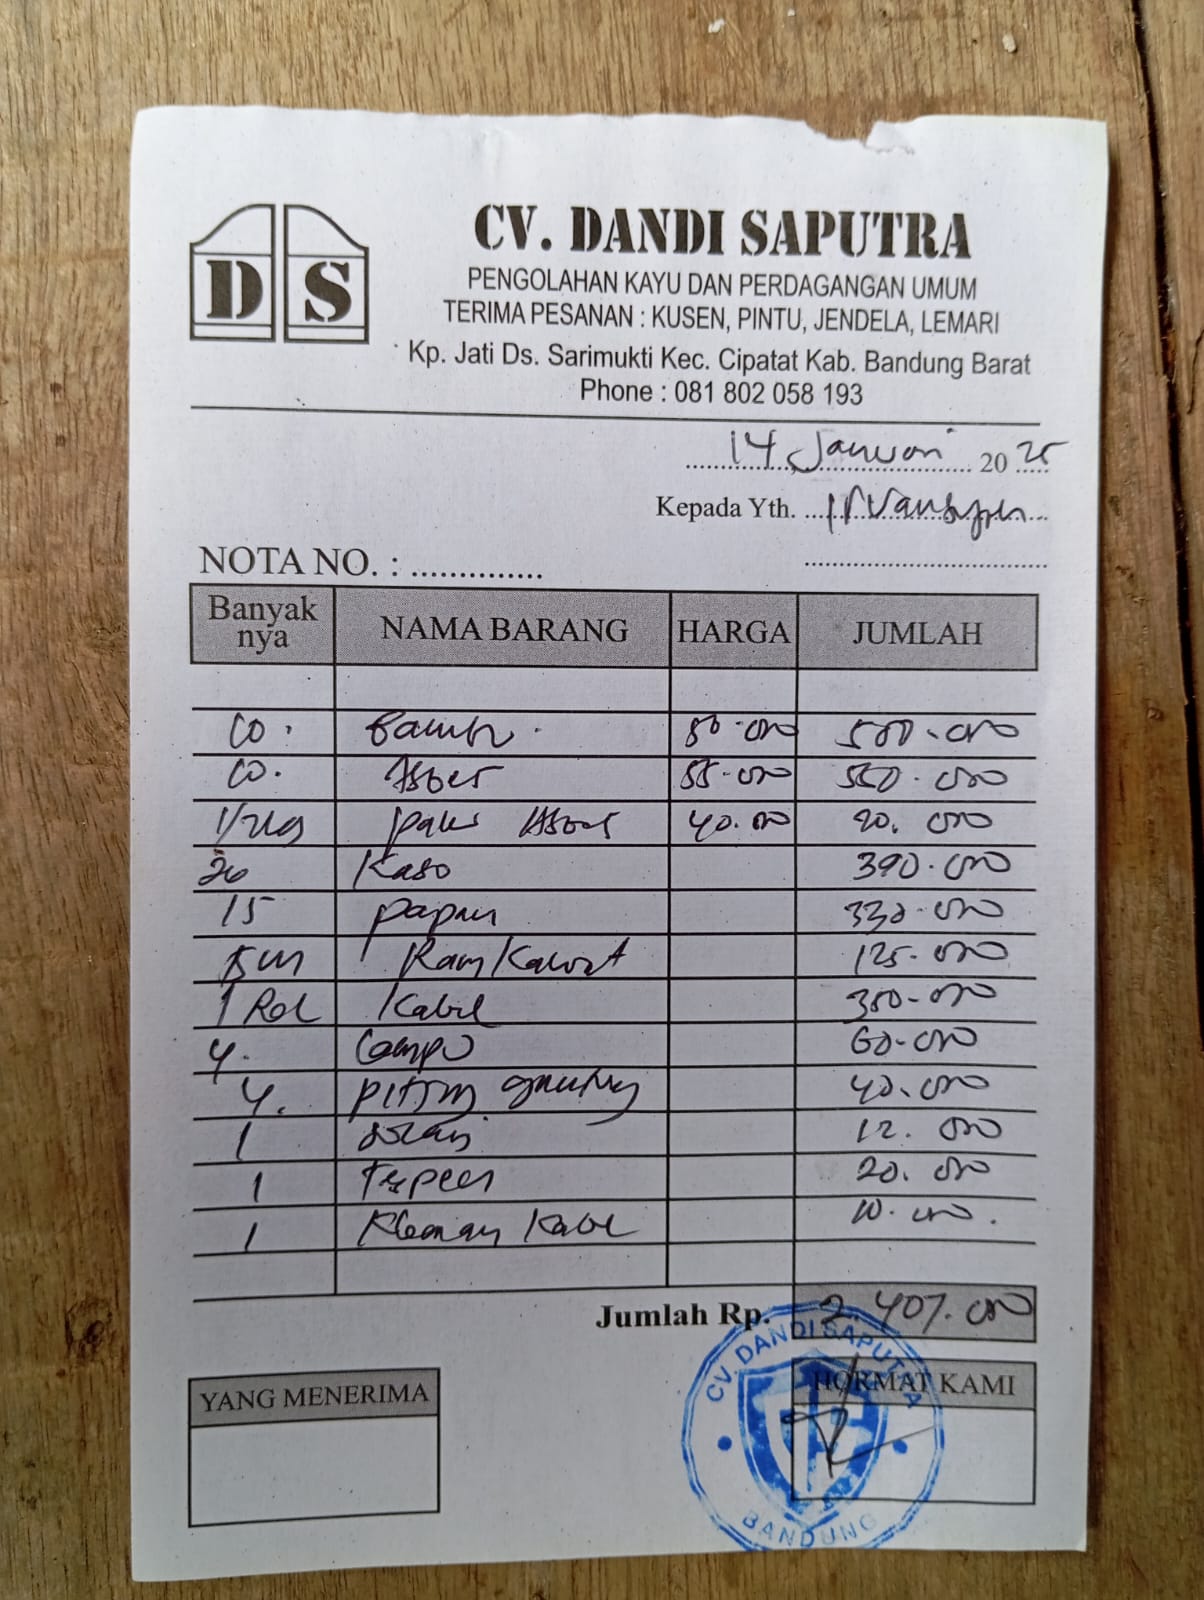 D S
CV. DANDI SAPUTRA
PENGOLAHAN KAYU DAN PERDAGANGAN UMUM
TERIMA PESANAN : KUSEN, PINTU, JENDELA, LEMARI
Kp. Jati Ds. Sarimukti Kec. Cipatat Kab. Bandung Barat
Phone : 081 802 058 193
14 Januari 2025
Kepada Yth.
NOTA NO. : ..............
Banyak nya NAMA BARANG HARGA JUMLAH
10. Bambu. 50.000 500.000
10. Asbes 55.000 550.000
1/2kg paku Asbes 40.000 20.000
26 Kaso 390.000
15 papan 330.000
5m Ram Kawat 125.000
1 Rol Kabel 350.000
4. Lampu 60.000
4. pitting gantung 40.000
1 12.000
1 20.000
1 Kleman Kabel 10.000.
Jumlah Rp. 2.407.000
YANG MENERIMA
HORMAT KAMI
CV. DANDI SAPUTRA
BANDUNG